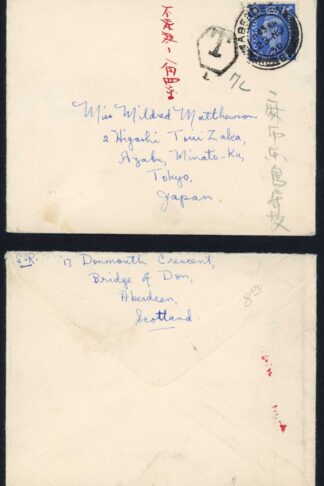 T
7c
Miss Mildred Matthewson
2 Higashi Torii Zaka,
Azabu, Minato-Ku,
Tokyo,
Japan.
麻布東鳥居坂
S.K. 17 Donmouth Crescent,
Bridge of Don,
Aberdeen,
Scotland.
8 00